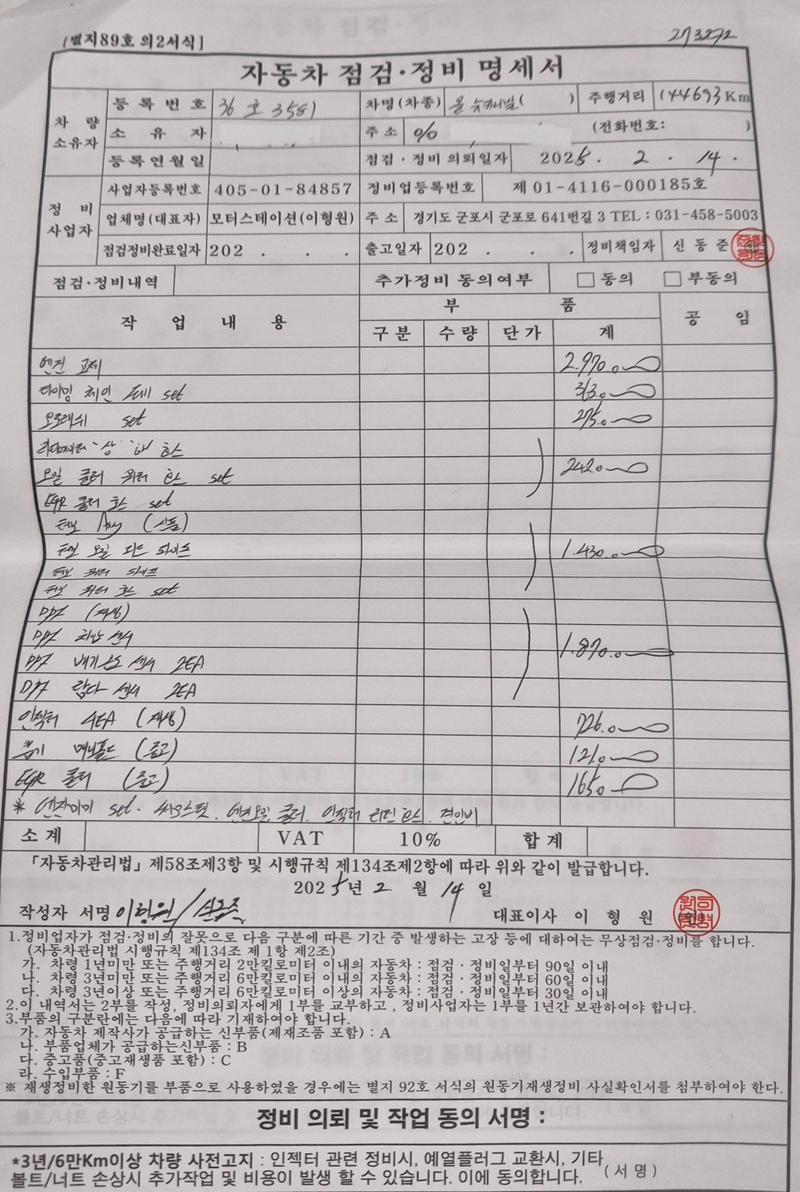 [별지89호 의2서식]
273272
자동차 점검·정비 명세서
차량 소유자 등록번호 36호3581 차명(차종) 올 뉴카니발( ) 주행거리 144693Km
소유자 주소 % (전화번호: )
등록연월일 점검·정비 의뢰일자 2025. 2. 14.
정비 사업자 사업자등록번호 405-01-84857 정비업등록번호 제 01-4116-000185호
업체명(대표자) 모터스테이션(이형원) 주소 경기도 군포시 군포로 641번길 3 TEL : 031-458-5003
점검정비완료일자 202 . . . 출고일자 202 . . . 정비책임자 신동준
점검·정비내역 추가정비 동의여부 □ 동의 □ 부동의
작업내용 부품 공임
구분 수량 단가 계
엔진 교체 2.970.0
타이밍 체인 set 313.0
set 275.0
라디에이터 상 하 호스
오일 쿨러 워터 호스 set 242.0
EGR 쿨러 호스 set
터보 Assy (신품)
터보 오일 피드 파이프 1.430.0
터보 워터 파이프
터보 워터 호스 set
DPF (재생)
DPF 차압 센서 1.870.0
DPF 배기온도 센서 2EA
DPF 람다 센서 2EA
인젝터 4EA (재생) 726.0
흡기 매니폴드 (중고) 121.0
EGR 쿨러 (중고) 165.0
* 엔진미미 set. 써모스탯. 엔진오일 쿨러. 인젝터 리턴 호스. 견인비
소계 VAT 10% 합계
「자동차관리법」제58조제3항 및 시행규칙 제134조제2항에 따라 위와 같이 발급합니다.
2025년 2 월 14 일
작성자 서명 이형원 / 신동준 대표이사 이형원
1.정비업자가 점검·정비의 잘못으로 다음 구분에 따른 기간 중 발생하는 고장 등에 대하여는 무상점검·정비를 합니다.
(자동차관리법 시행규칙 제134조 제1항 제2조)
가. 차령 1년미만 또는 주행거리 2만킬로미터 이내의 자동차 : 점검·정비일부터 90일 이내
나. 차령 3년미만 또는 주행거리 6만킬로미터 이내의 자동차 : 점검·정비일부터 60일 이내
다. 차령 3년이상 또는 주행거리 6만킬로미터 이상의 자동차 : 점검·정비일부터 30일 이내
2.이 내역서는 2부를 작성, 정비의뢰자에게 1부를 교부하고, 정비사업자는 1부를 1년간 보관하여야 합니다.
3.부품의 구분란에는 다음에 따라 기재하여야 합니다.
가. 자동차 제작사가 공급하는 신부품(제재조품 포함) : A
나. 부품업체가 공급하는신부품 : B
다. 중고품(중고재생품 포함) : C
라. 수입부품 : F
※ 재생정비한 원동기를 부품으로 사용하였을 경우에는 별지 92호 서식의 원동기재생정비 사실확인서를 첨부하여야 한다.
정비 의뢰 및 작업 동의 서명 :
*3년/6만Km이상 차량 사전고지 : 인젝터 관련 정비시, 예열플러그 교환시, 기타
볼트/너트 손상시 추가작업 및 비용이 발생 할 수 있습니다. 이에 동의합니다. (서명)